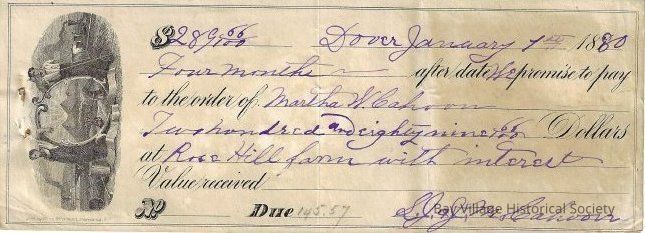 $289 66/100 Dover January 1st 1880
Four months after date We promise to pay
to the order of Martha W Cahoon
Two hundred and eighty nine 66/100 Dollars
at Rose Hill farm with interest
Value received
No Due 145.57
Bay Village Historical Society
Cahoon